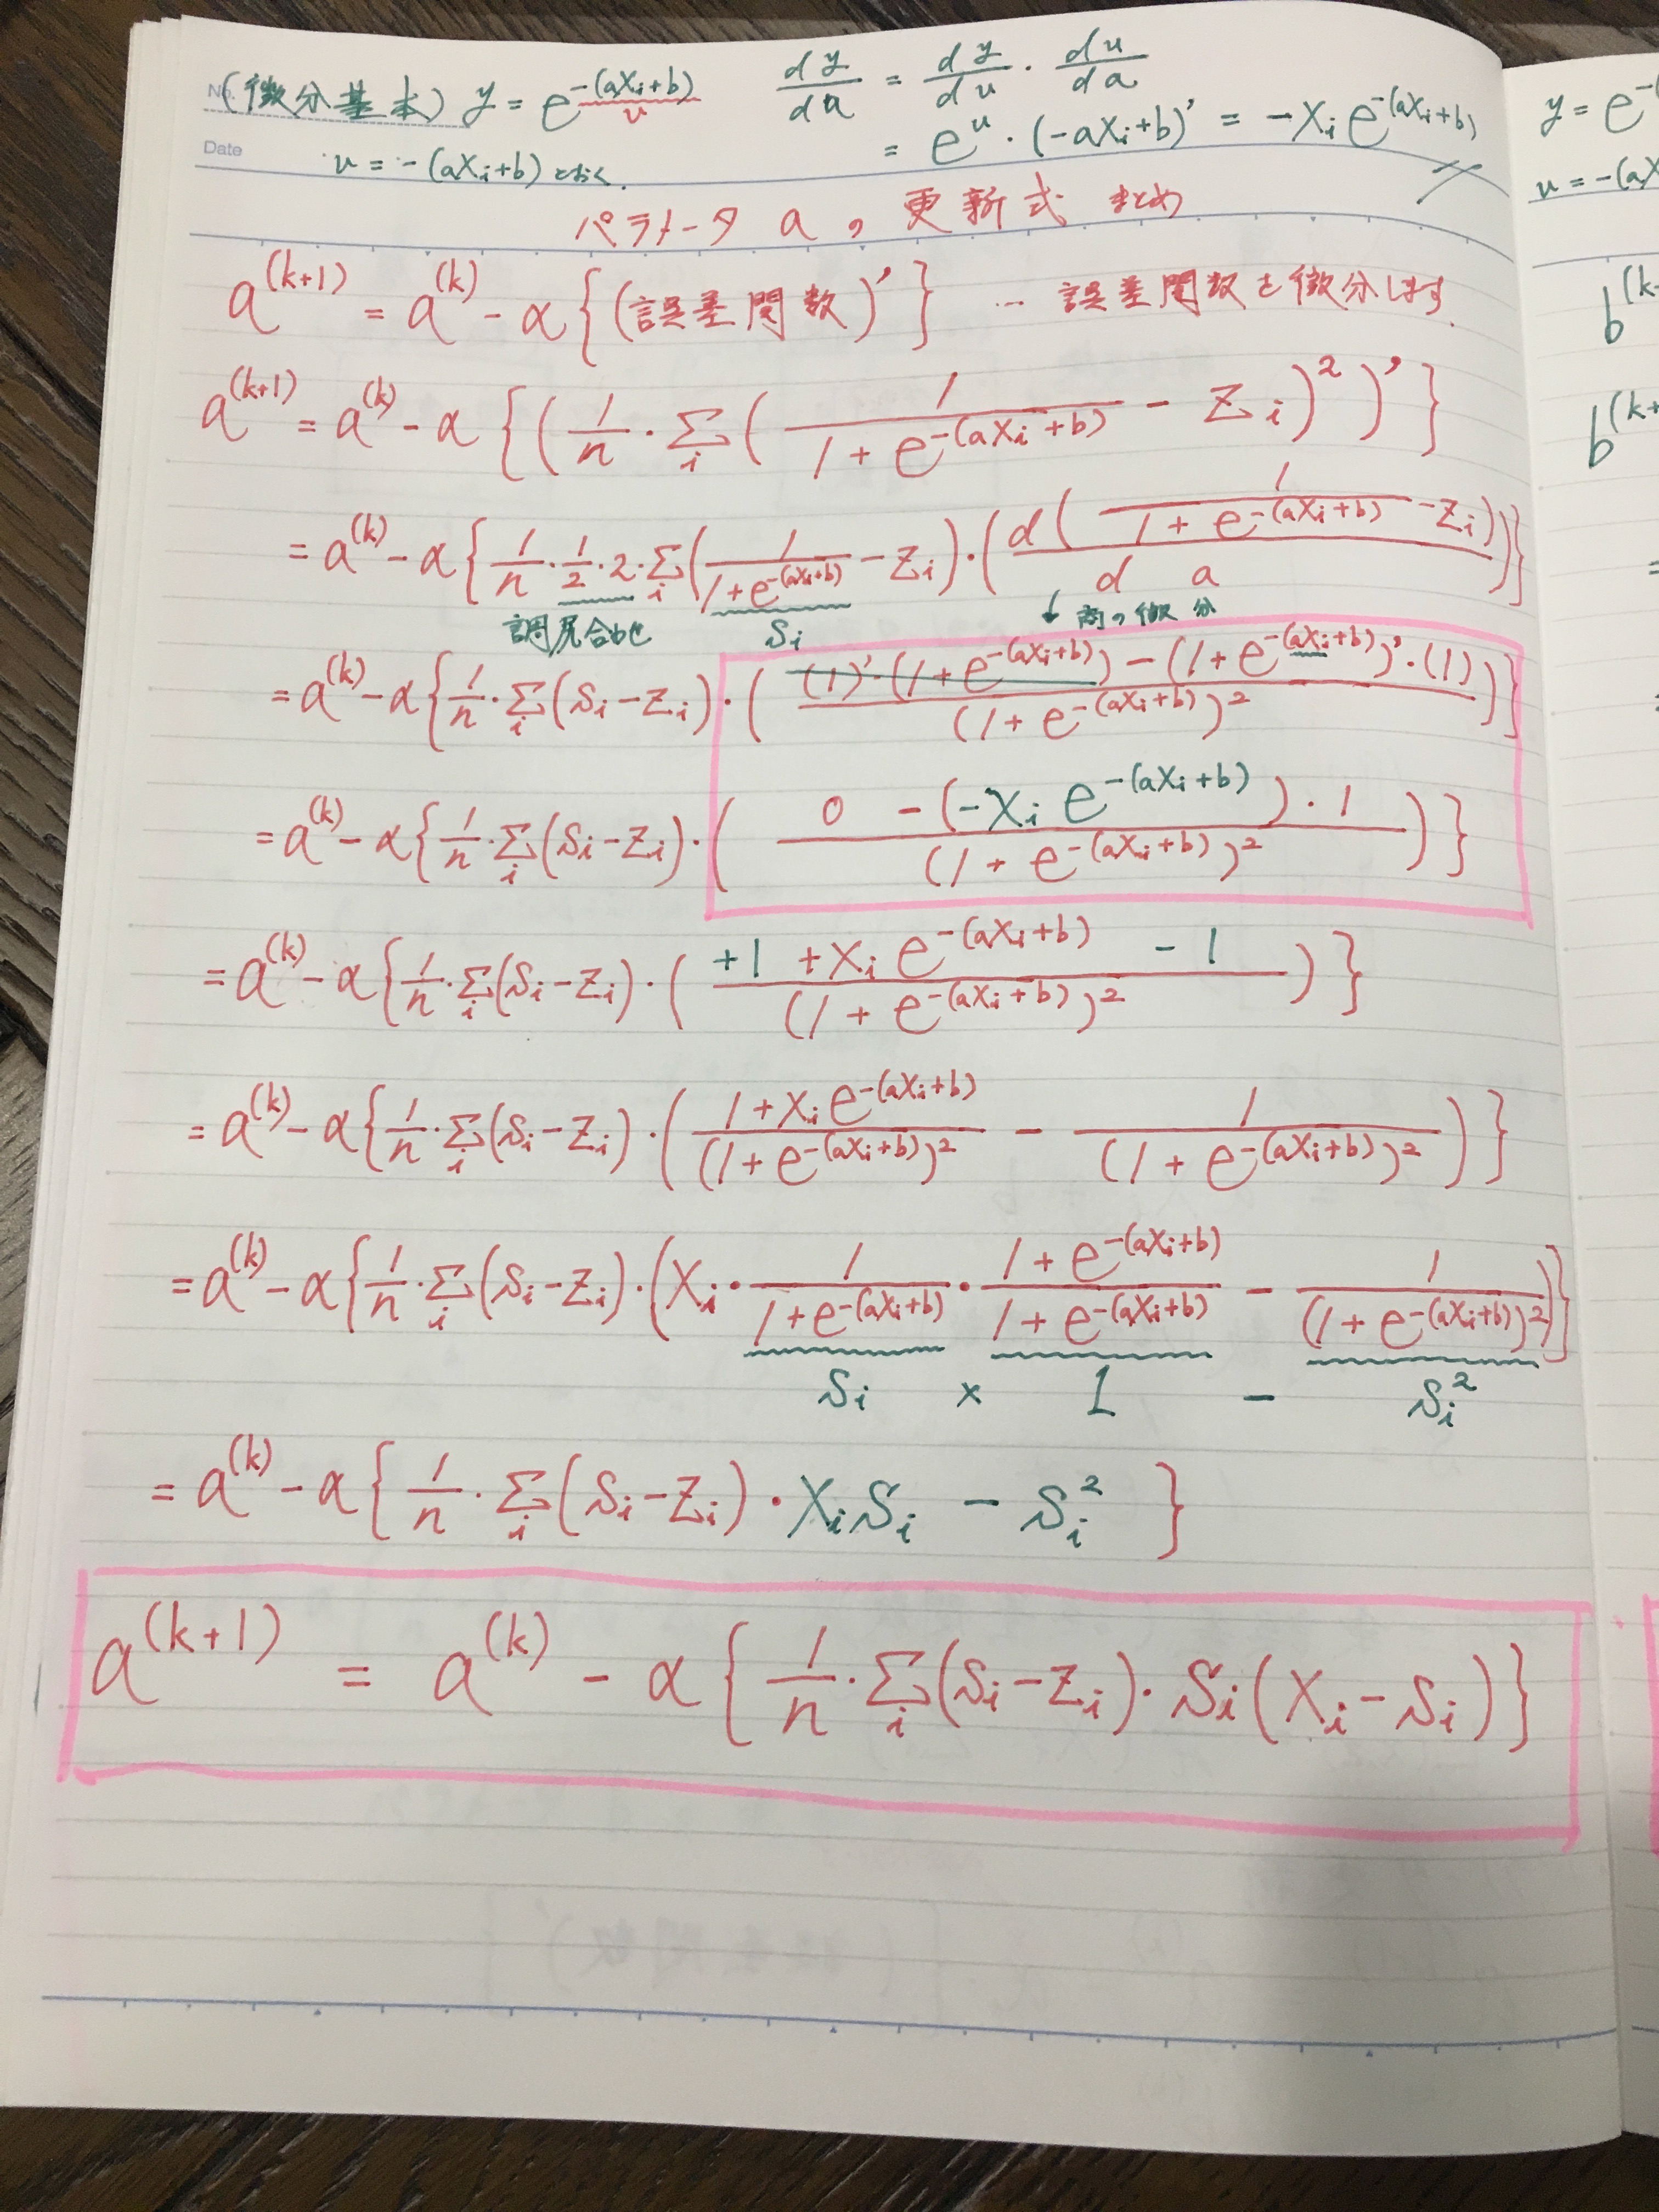 No.
(微分基本) y = e^{-(aXi+b)} dy/da = dy/du · du/da
u
Date
u = -(aXi+b) とおく. = e^u · (-aXi+b)' = -Xi e^{-(aXi+b)}
パラメータ a の 更新式 まとめ
a^{(k+1)} = a^{(k)} - α { (誤差関数)' } … 誤差関数を微分します.
a^{(k+1)} = a^{(k)} - α { ( 1/n · Σ_i ( 1/(1 + e^{-(aXi+b)}) - Zi )^2 )' }
= a^{(k)} - α { 1/n · 1/2 · 2 · Σ_i ( 1/(1+e^{-(aXi+b)}) - Zi ) · ( d ( 1/(1 + e^{-(aXi+b)}) - Zi ) / d a ) }
調尻合わせ Si ↓ 商の微分
= a^{(k)} - α { 1/n · Σ_i (Si - Zi) · ( ( (1)' · (1 + e^{-(aXi+b)}) - (1 + e^{-(aXi+b)})' · (1) ) / (1 + e^{-(aXi+b)})^2 ) }
= a^{(k)} - α { 1/n · Σ_i (Si - Zi) · ( ( 0 - (-Xi e^{-(aXi+b)}) · 1 ) / (1 + e^{-(aXi+b)})^2 ) }
= a^{(k)} - α { 1/n · Σ_i (Si - Zi) · ( ( +1 + Xi e^{-(aXi+b)} - 1 ) / (1 + e^{-(aXi+b)})^2 ) }
= a^{(k)} - α { 1/n · Σ_i (Si - Zi) · ( (1 + Xi e^{-(aXi+b)}) / (1 + e^{-(aXi+b)})^2 - 1 / (1 + e^{-(aXi+b)})^2 ) }
= a^{(k)} - α { 1/n · Σ_i (Si - Zi) · ( Xi · 1/(1 + e^{-(aXi+b)}) · (1 + e^{-(aXi+b)})/(1 + e^{-(aXi+b)}) - 1/(1 + e^{-(aXi+b)})^2 ) }
Si × 1 - Si^2
= a^{(k)} - α { 1/n · Σ_i (Si - Zi) · XiSi - Si^2 }
a^{(k+1)} = a^{(k)} - α { 1/n · Σ_i (Si - Zi) · Si (Xi - Si) }
y = e^{-(
u = -(aX
b^{(k
b^{(k+